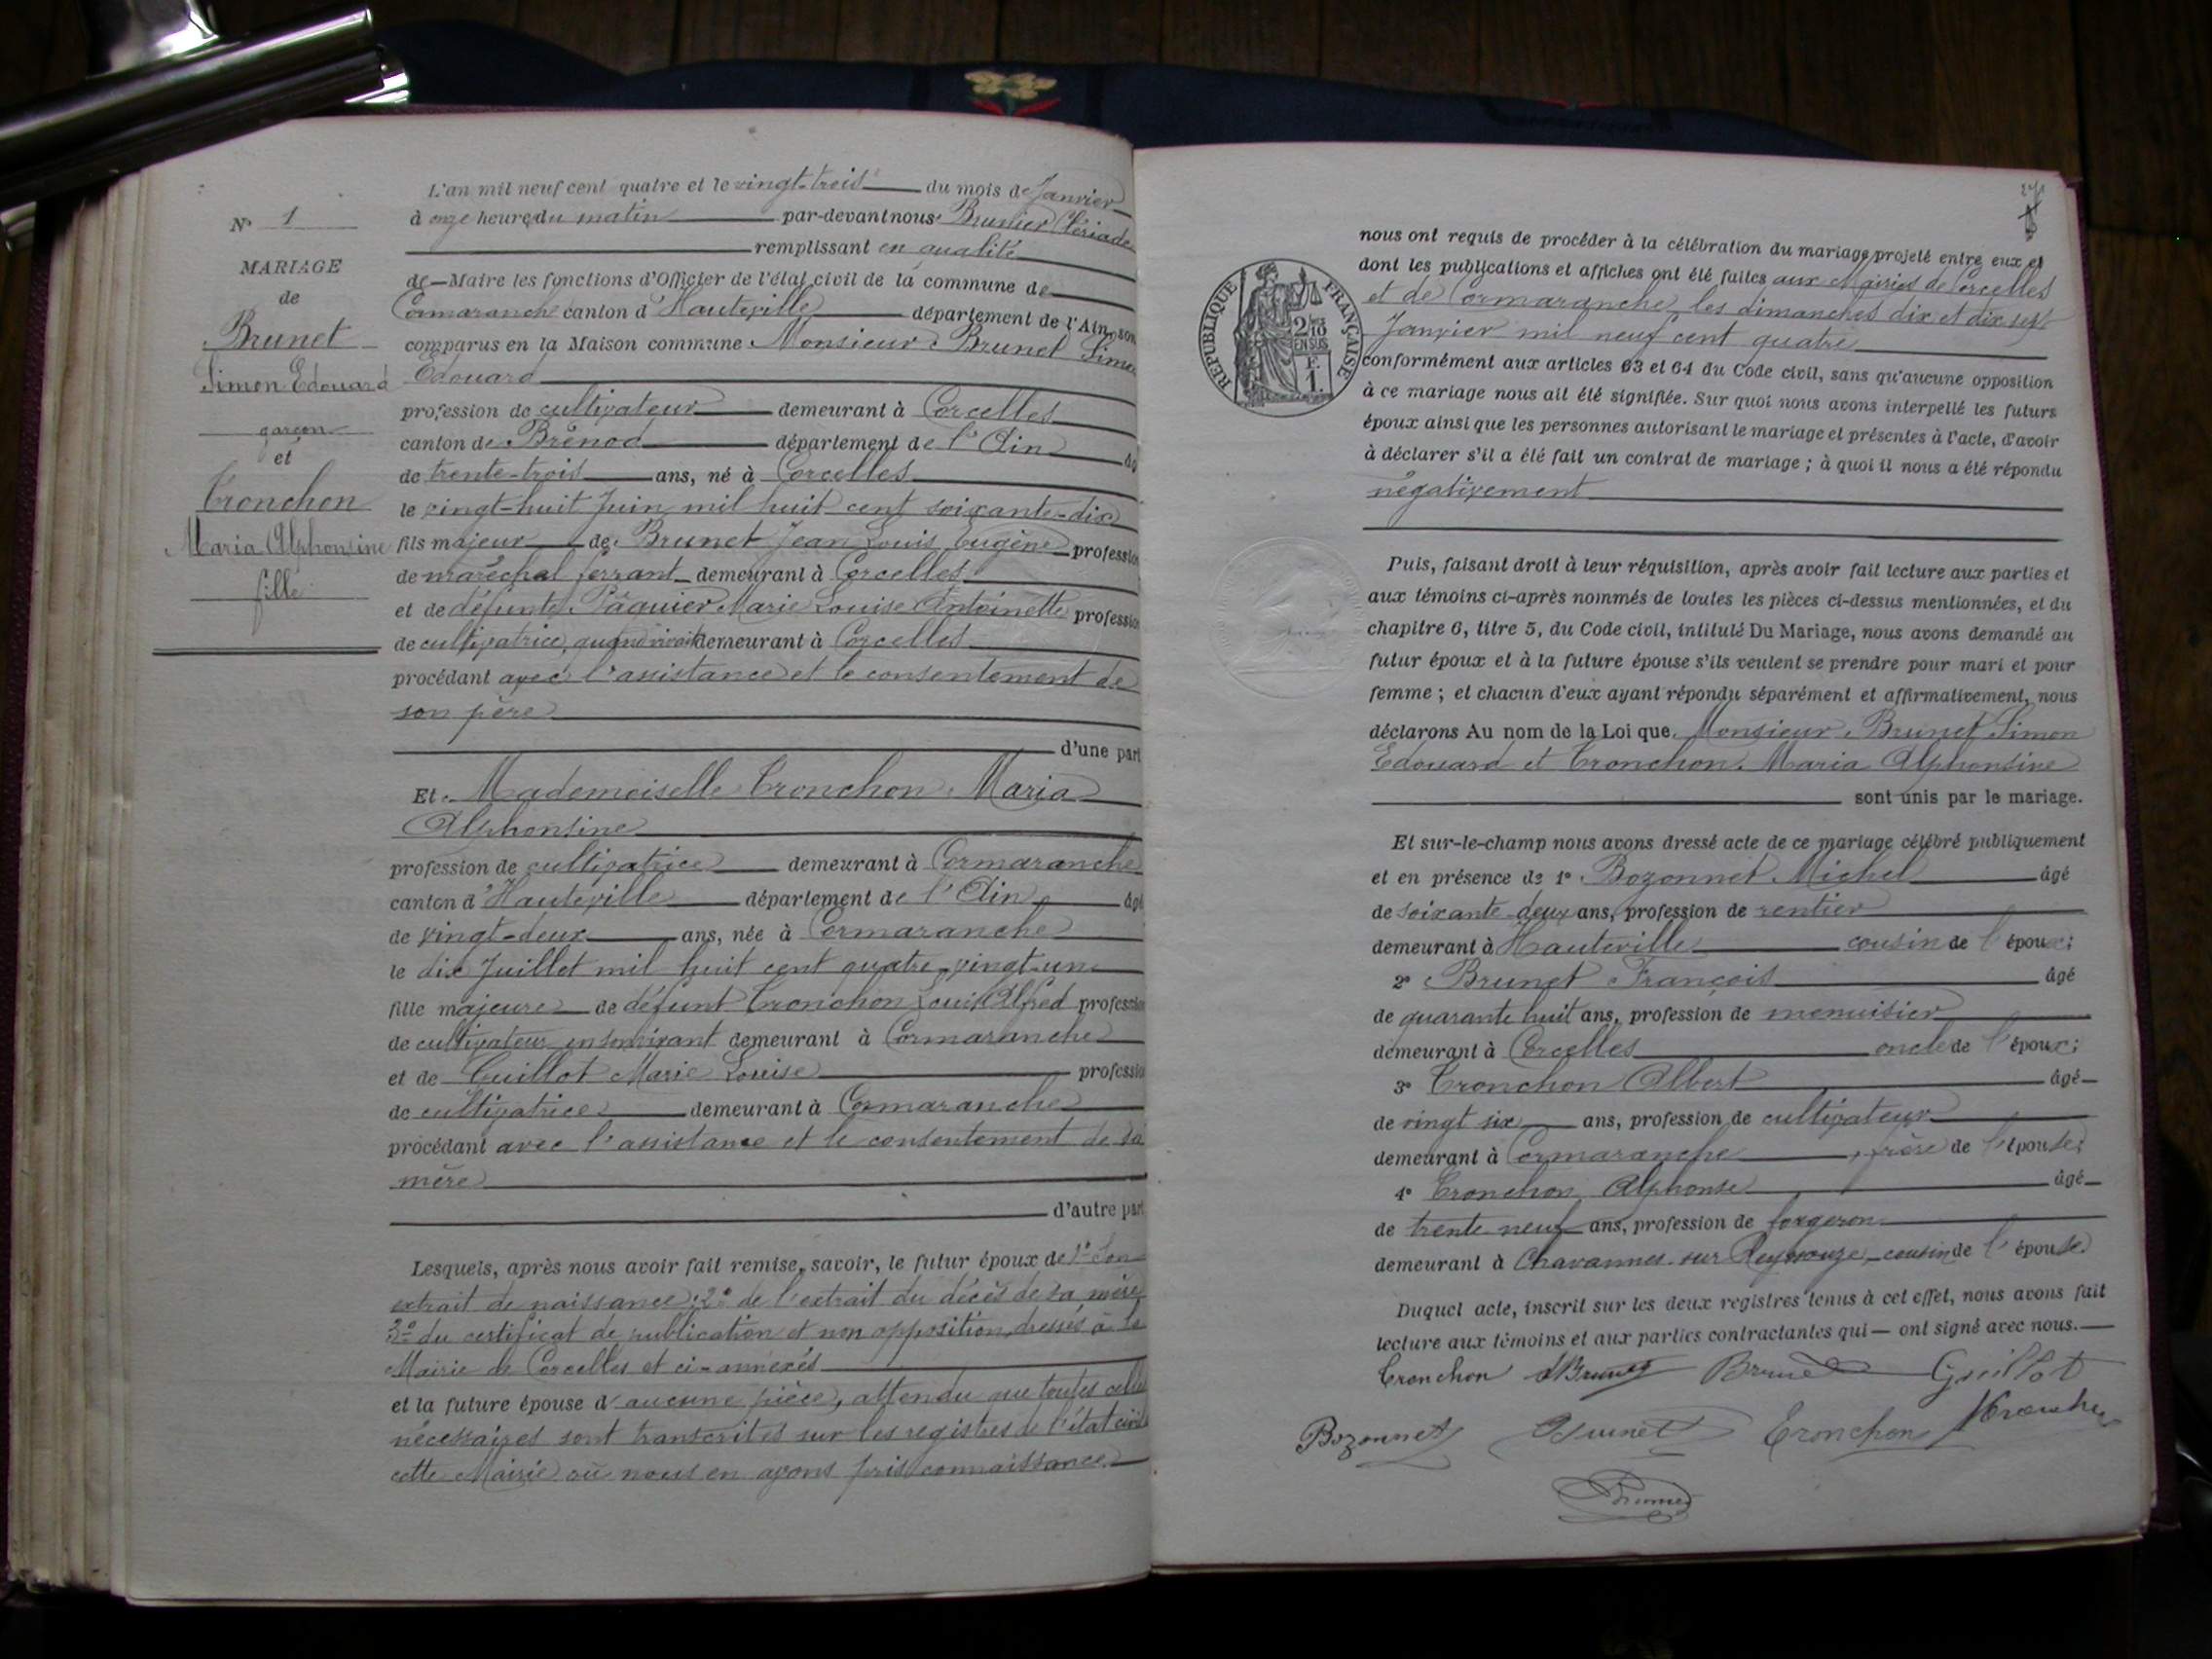 N° 1
MARIAGE
de
Brunet
Simon Edouard
garçon
et
Tronchon
Maria Alphonsine
fille
L'an mil neuf cent quatre et le vingt-trois du mois de Janvier
à onze heures du matin par-devant nous Brunier Cériade
remplissant en qualité
de Maire les fonctions d'Officier de l'état civil de la commune de
Cormaranche canton d'Hauteville département de l'Ain, sont
comparus en la Maison commune Monsieur Brunet Simon
Edouard
profession de cultivateur demeurant à Corcelles
canton de Brénod département de l'Ain âgé
de trente-trois ans, né à Corcelles
le vingt-huit Juin mil huit cent soixante-dix
fils majeur de Brunet Jean Louis Eugène profession
de maréchal ferrant demeurant à Corcelles
et de défunte Pâquier Marie Louise Antoinette profession
de cultivatrice, quand vivait demeurant à Corcelles
procédant avec l'assistance et le consentement de
son père
d'une part
Et Mademoiselle Tronchon Maria
Alphonsine
profession de cultivatrice demeurant à Cormaranche
canton d'Hauteville département de l'Ain âgé
de vingt-deux ans, née à Cormaranche
le dix Juillet mil huit cent quatre-vingt-un
fille majeure de défunt Tronchon Louis Alfred profession
de cultivateur en son vivant demeurant à Cormaranche
et de Guillot Marie Louise profession
de cultivatrice demeurant à Cormaranche
procédant avec l'assistance et le consentement de sa
mère
d'autre part
Lesquels, après nous avoir fait remise, savoir, le futur époux de 1° Son
extrait de naissance; 2° de l'extrait du décès de sa mère
3° du certificat de publication et non opposition, dressés à la
Mairie de Corcelles et ci-annexés
et la future épouse d'aucune pièce, attendu que toutes celles
nécessaires sont transcrites sur les registres de l'état civil
cette Mairie où nous en avons pris connaissance.
nous ont requis de procéder à la célébration du mariage projeté entre eux et
dont les publications et affiches ont été faites aux Mairies de Corcelles
et de Cormaranche, les dimanches dix et dix sept
Janvier mil neuf cent quatre
RÉPUBLIQUE FRANÇAISE
2/10
EN SUS
F.
1.
conformément aux articles 63 et 64 du Code civil, sans qu'aucune opposition
à ce mariage nous ait été signifiée. Sur quoi nous avons interpellé les futurs
époux ainsi que les personnes autorisant le mariage et présentes à l'acte, d'avoir
à déclarer s'il a été fait un contrat de mariage ; à quoi il nous a été répondu
négativement
Puis, faisant droit à leur réquisition, après avoir fait lecture aux parties et
aux témoins ci-après nommés de toutes les pièces ci-dessus mentionnées, et du
chapitre 6, titre 5, du Code civil, intitulé Du Mariage, nous avons demandé au
futur époux et à la future épouse s'ils veulent se prendre pour mari et pour
femme ; et chacun d'eux ayant répondu séparément et affirmativement, nous
déclarons Au nom de la Loi que Monsieur Brunet Simon
Edouard et Tronchon Maria Alphonsine
sont unis par le mariage.
Et sur-le-champ nous avons dressé acte de ce mariage célébré publiquement
et en présence de 1° Bozonnet Michel âgé
de soixante-deux ans, profession de rentier
demeurant à Hauteville cousin de l'époux;
2° Brunet François âgé
de quarante huit ans, profession de menuisier
demeurant à Corcelles oncle de l'époux;
3° Tronchon Albert âgé
de vingt six ans, profession de cultivateur
demeurant à Cormaranche, frère de l'épouse;
4° Tronchon Alphonse âgé
de trente neuf ans, profession de forgeron
demeurant à Chavannes-sur-Reyssouze, cousin de l'épouse.
Duquel acte, inscrit sur les deux registres tenus à cet effet, nous avons fait
lecture aux témoins et aux parties contractantes qui ont signé avec nous.
Tronchon Brunet Brunet Guillot
Bozonnet Brunet Tronchon